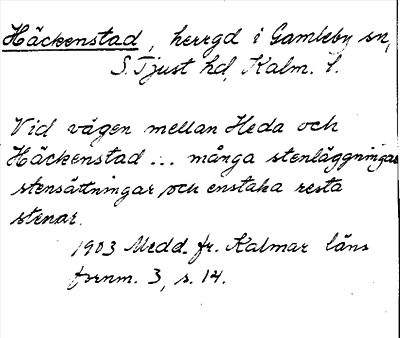 Häckenstad, herrgd i Gamleby sn,
S. Tjust hd, Kalm. l.
Vid vägen mellan Heda och
Häckenstad ... många stenläggningar
stensättningar och enstaka resta
stenar.
1903 Medd. fr. Kalmar läns
fornm. 3, s. 14.